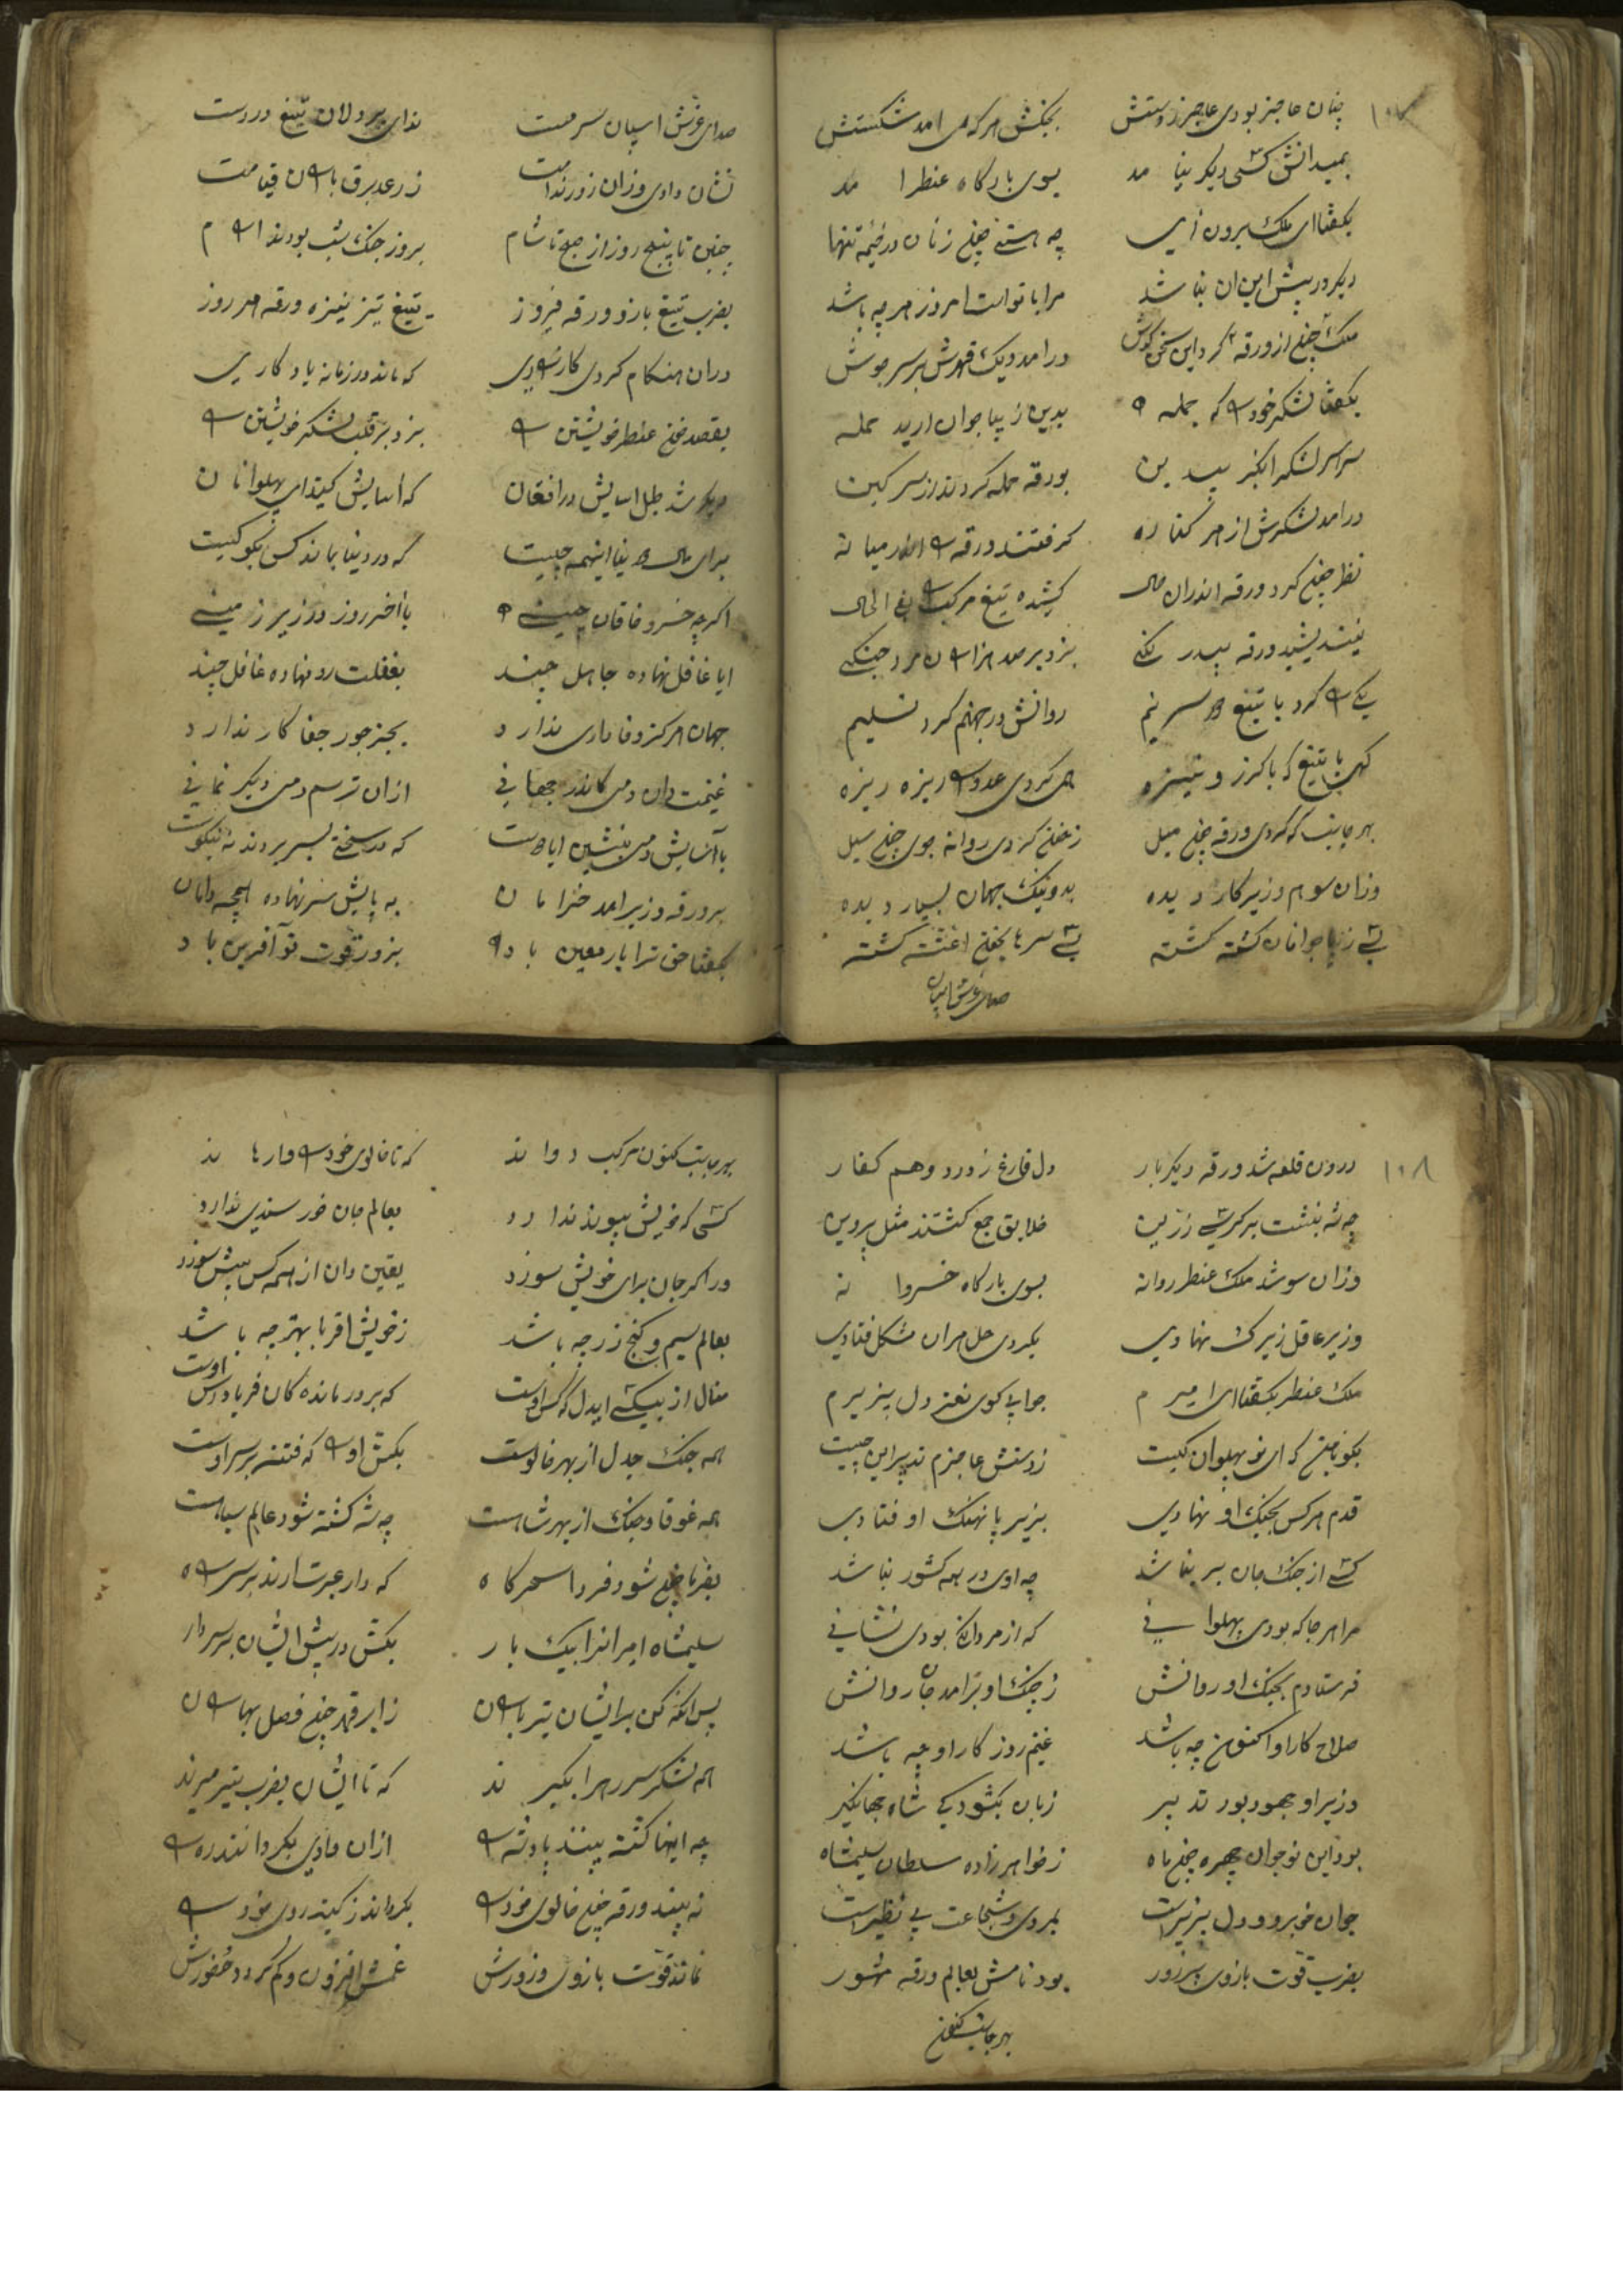 ۱۰۷
چنان عاجز بودی عاجز ز دستش بجنکش هر که می امد شکستش
بمیدانش کسی دیکر نیامد بسوی بارکاه عنطر امد
بکفتا ای ملک برون آیی چه هستی چون زنان در خیمه تنها
دیکر در پیش این ان نباشد مرا با تو است امروز هر چه باشد
ملک چون از ورقه کرد این سخن کوش در امد دیک قهرش بر سر جوش
بکفتا لشکر خود را که جمله بدین زیبا جوان ارید حمله
سراسر لشکر ابکبر بیدین بورقه حمله کردند از سر کین
در امد لشکرش از هر کناره کرفتند ورقه را اندر میانه
نظر چون کرد ورقه اندران حال کشیده تیغ مرکب را فی الحال
نیندیشید ورقه بیدرنکی بزد بر صد هزاران مرد جنکی
یکی را کرد با تیغ سر نیم روانش در جهنم کرد تسلیم
کهی با تیغ که با کرز و نیزه همی کردی عدو را ریزه ریزه
بهر جانب که کردی ورقه چون میل ز خون کردی روانه جوی چون سیل
وزان سو هم وزیر کار دیده بد و نیک جهان بسیار دیده
بسی زیبا جوانان کشته کشته بسی سرها بخون اغشته کشته
صدای غرش اسپان
صدای غرش اسپان سرمست ندای پر دلان تیغ در دست
نشان دادی وزان زور ندامت ز رعد برق باران قیامت
چنین تا پنج روز از صبح تا شام بروز جنک شب بودند ارام
بضرب تیغ بازو ورقه فیروز تیغ تیز نیزه ورقه هر روز
دران هنکام کردی کارزاری که ماند در زمانه یادکاری
بقصد خون عنطر خویشتن را بزد بر قلب لشکر خویشتن را
دیکر شد طبل اسایش در افغان که آسایش کنید ای پهلوانان
برای مال دنیا اینهمه چیست که در دنیا بماند کس بکو کیست
اکر چه خسرو خاقان چینی بآخر روز در زیر زمینی
ایا غافل نهاده جاهل چند بغفلت رو نهاده غافل چند
جهان هرکز وفاداری ندارد بجز جور جفا کار ندارد
غنیمت دان دمی کاندر جهانی ازان ترسم دمی دیکر نمانی
بآسایش دمی بنشین ایا دوست که در سختی بسر بردن نه نیکوست
بر ورقه وزیر امد خرامان به پایش سر نهاده همچه دامان
بکفتا حق ترا یار معین باد بزور قوت تو آفرین باد
۱۰۸
درون قلعه شد ورقه دیکر بار دل فارغ ز درد وهم کفار
چه شه بنشست بر کرسی زرین خلایق جمع کشتند مثل پروین
وزان سو شد ملک عنطر روانه بسوی بارکاه خسروانه
وزیر عاقل زیرک نهادی بکردی حل هران مشکل فتادی
ملک عنطر بکفتا ای امیرم جوابی کوی نغز دل پزیرم
بکو با من که ای نو پهلوان کیست ز دستش عاجزم تدبیر این چیست
قدم هر کس بجنک او نهادی بزیر پا نهنک او فتادی
کسی از جنک جان بر نباشد چه اوی در همه کشور نباشد
مرا هر جا که بودی پهلوانی که از مردانکی بودی نشانی
فرستادم بجنک او روانش ز جنک او برامد جان روانش
صلاح کار او اکنون چه باشد غنیم روز کار او چه باشد
وزیر او جهود بور تدبیر زبان بکشود کی شاه جهانکیر
بود این نوجوان چهره چون ماه ز خواهرزاده سلطان سلیمشاه
جوان خوبرو و دل پزیر است بمردی و شجاعت بی نظیر است
بضرب قوت بازوی پر زور بود نامش بعالم ورقه مشهور
بهر جانب کنون
بهر جانب کنون مرکب دواند که تا خالوی خود را وارهاند
کسی که خویش پیوند ندارد بعالم جان خورسندی ندارد
ور اکر جان برای خویش سوزد یقین دان از همه کس بیش سوزد
بعالم سیم و کنج زر چه باشد ز خویش اقربا بهتر چه باشد
منال از بیکسی ایدل که کس اوست که بر درمانده کان فریادرس اوست
همه جنک جدل از بهر خالوست بکش او را که فتنه بر سر اوست
همه غوقا و جنک از بهر شاهست چه شه کشته شود عالم سیاهست
بفرما چون شود فردا سحرکاه که دار عبرت ارند بر سر راه
سلیمشاه امیران را بیک بار بکش در پیش ایشان بر سر دار
پس انکه کن بر ایشان تیر باران ز ابر قهر چون فصل بهاران
همه لشکر سر ره را بکیرند که تا ایشان بضرب تیر میرند
چه اینها کشته بینند پادشه را ازان وادی بکردانند ره را
نه بیند ورقه چون خالوی خود را بکرداند ز کینه روی خود را
نماند قوت بازوی وزورش غمش افزون وکم کردد حضورش